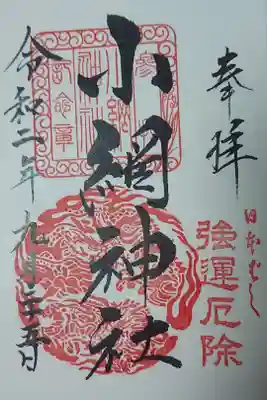 奉拝
日本ばし
強運厄除
小網神社
令和二年九月二十五日